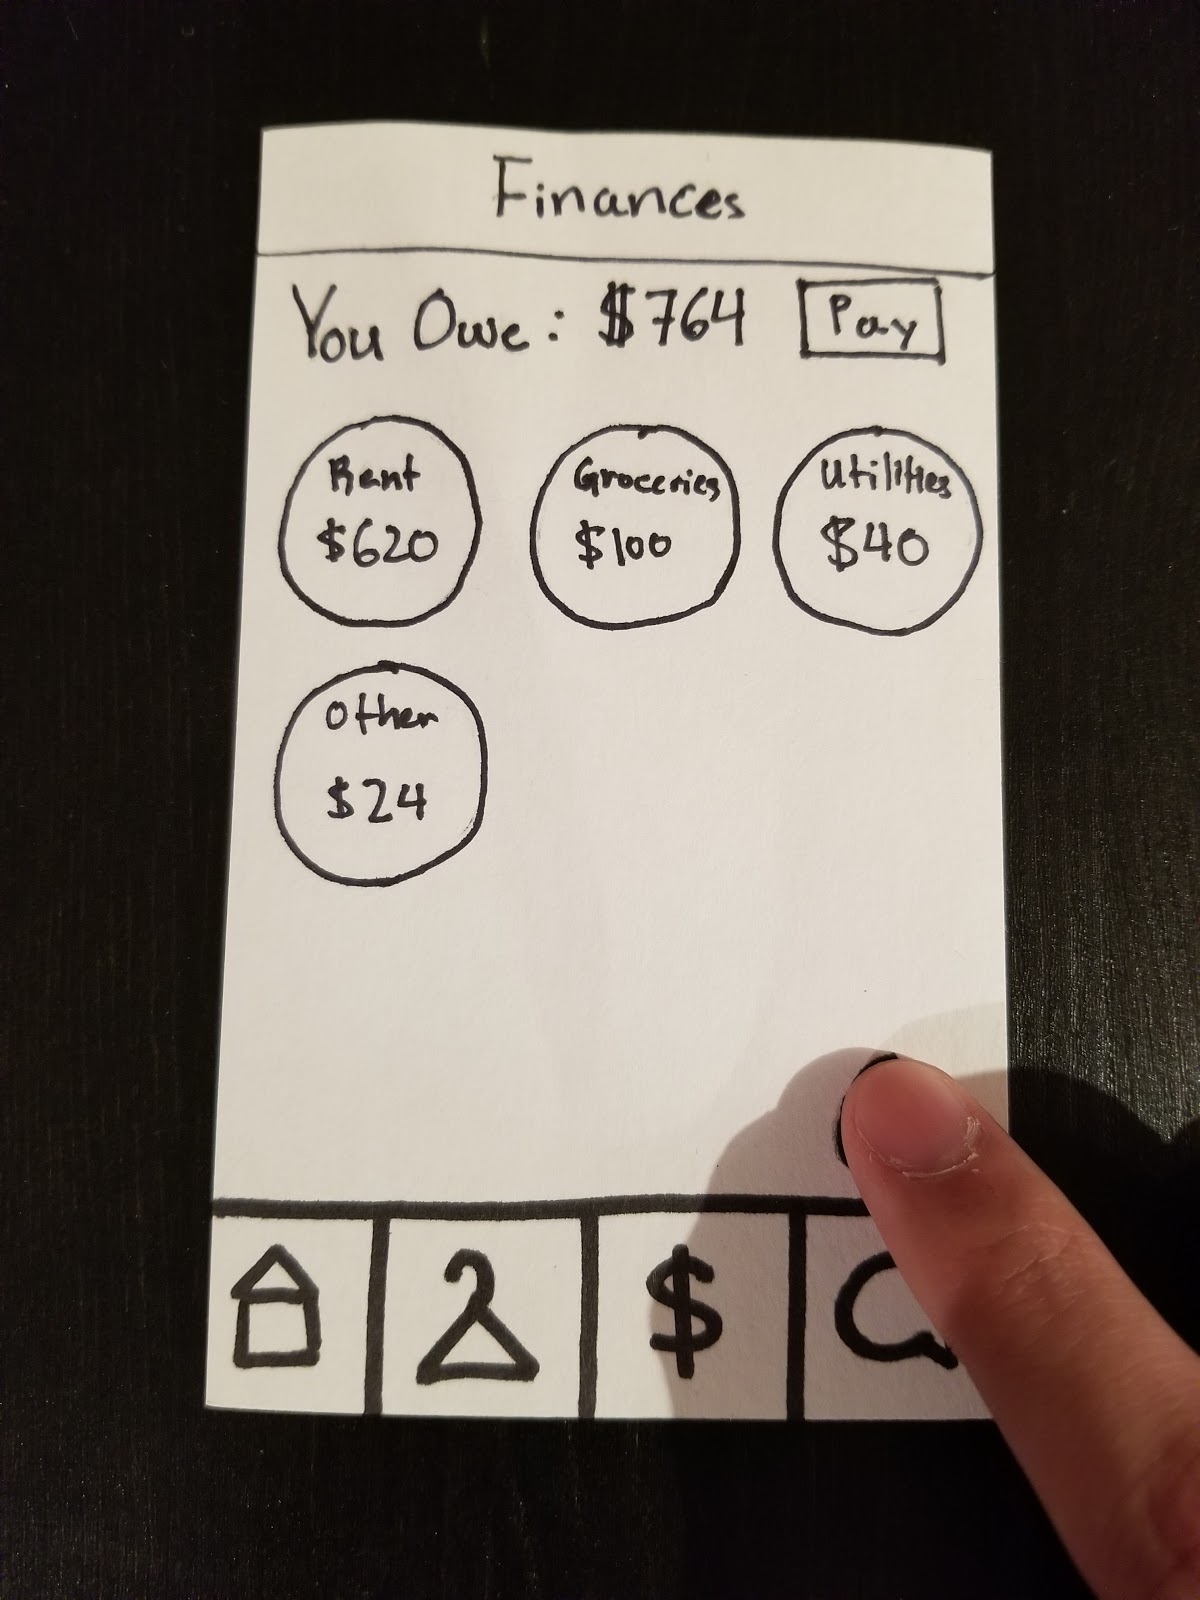 Finances
You Owe: $764 Pay
Rent Groceries Utilities
$620 $100 $40
Other
$24
$